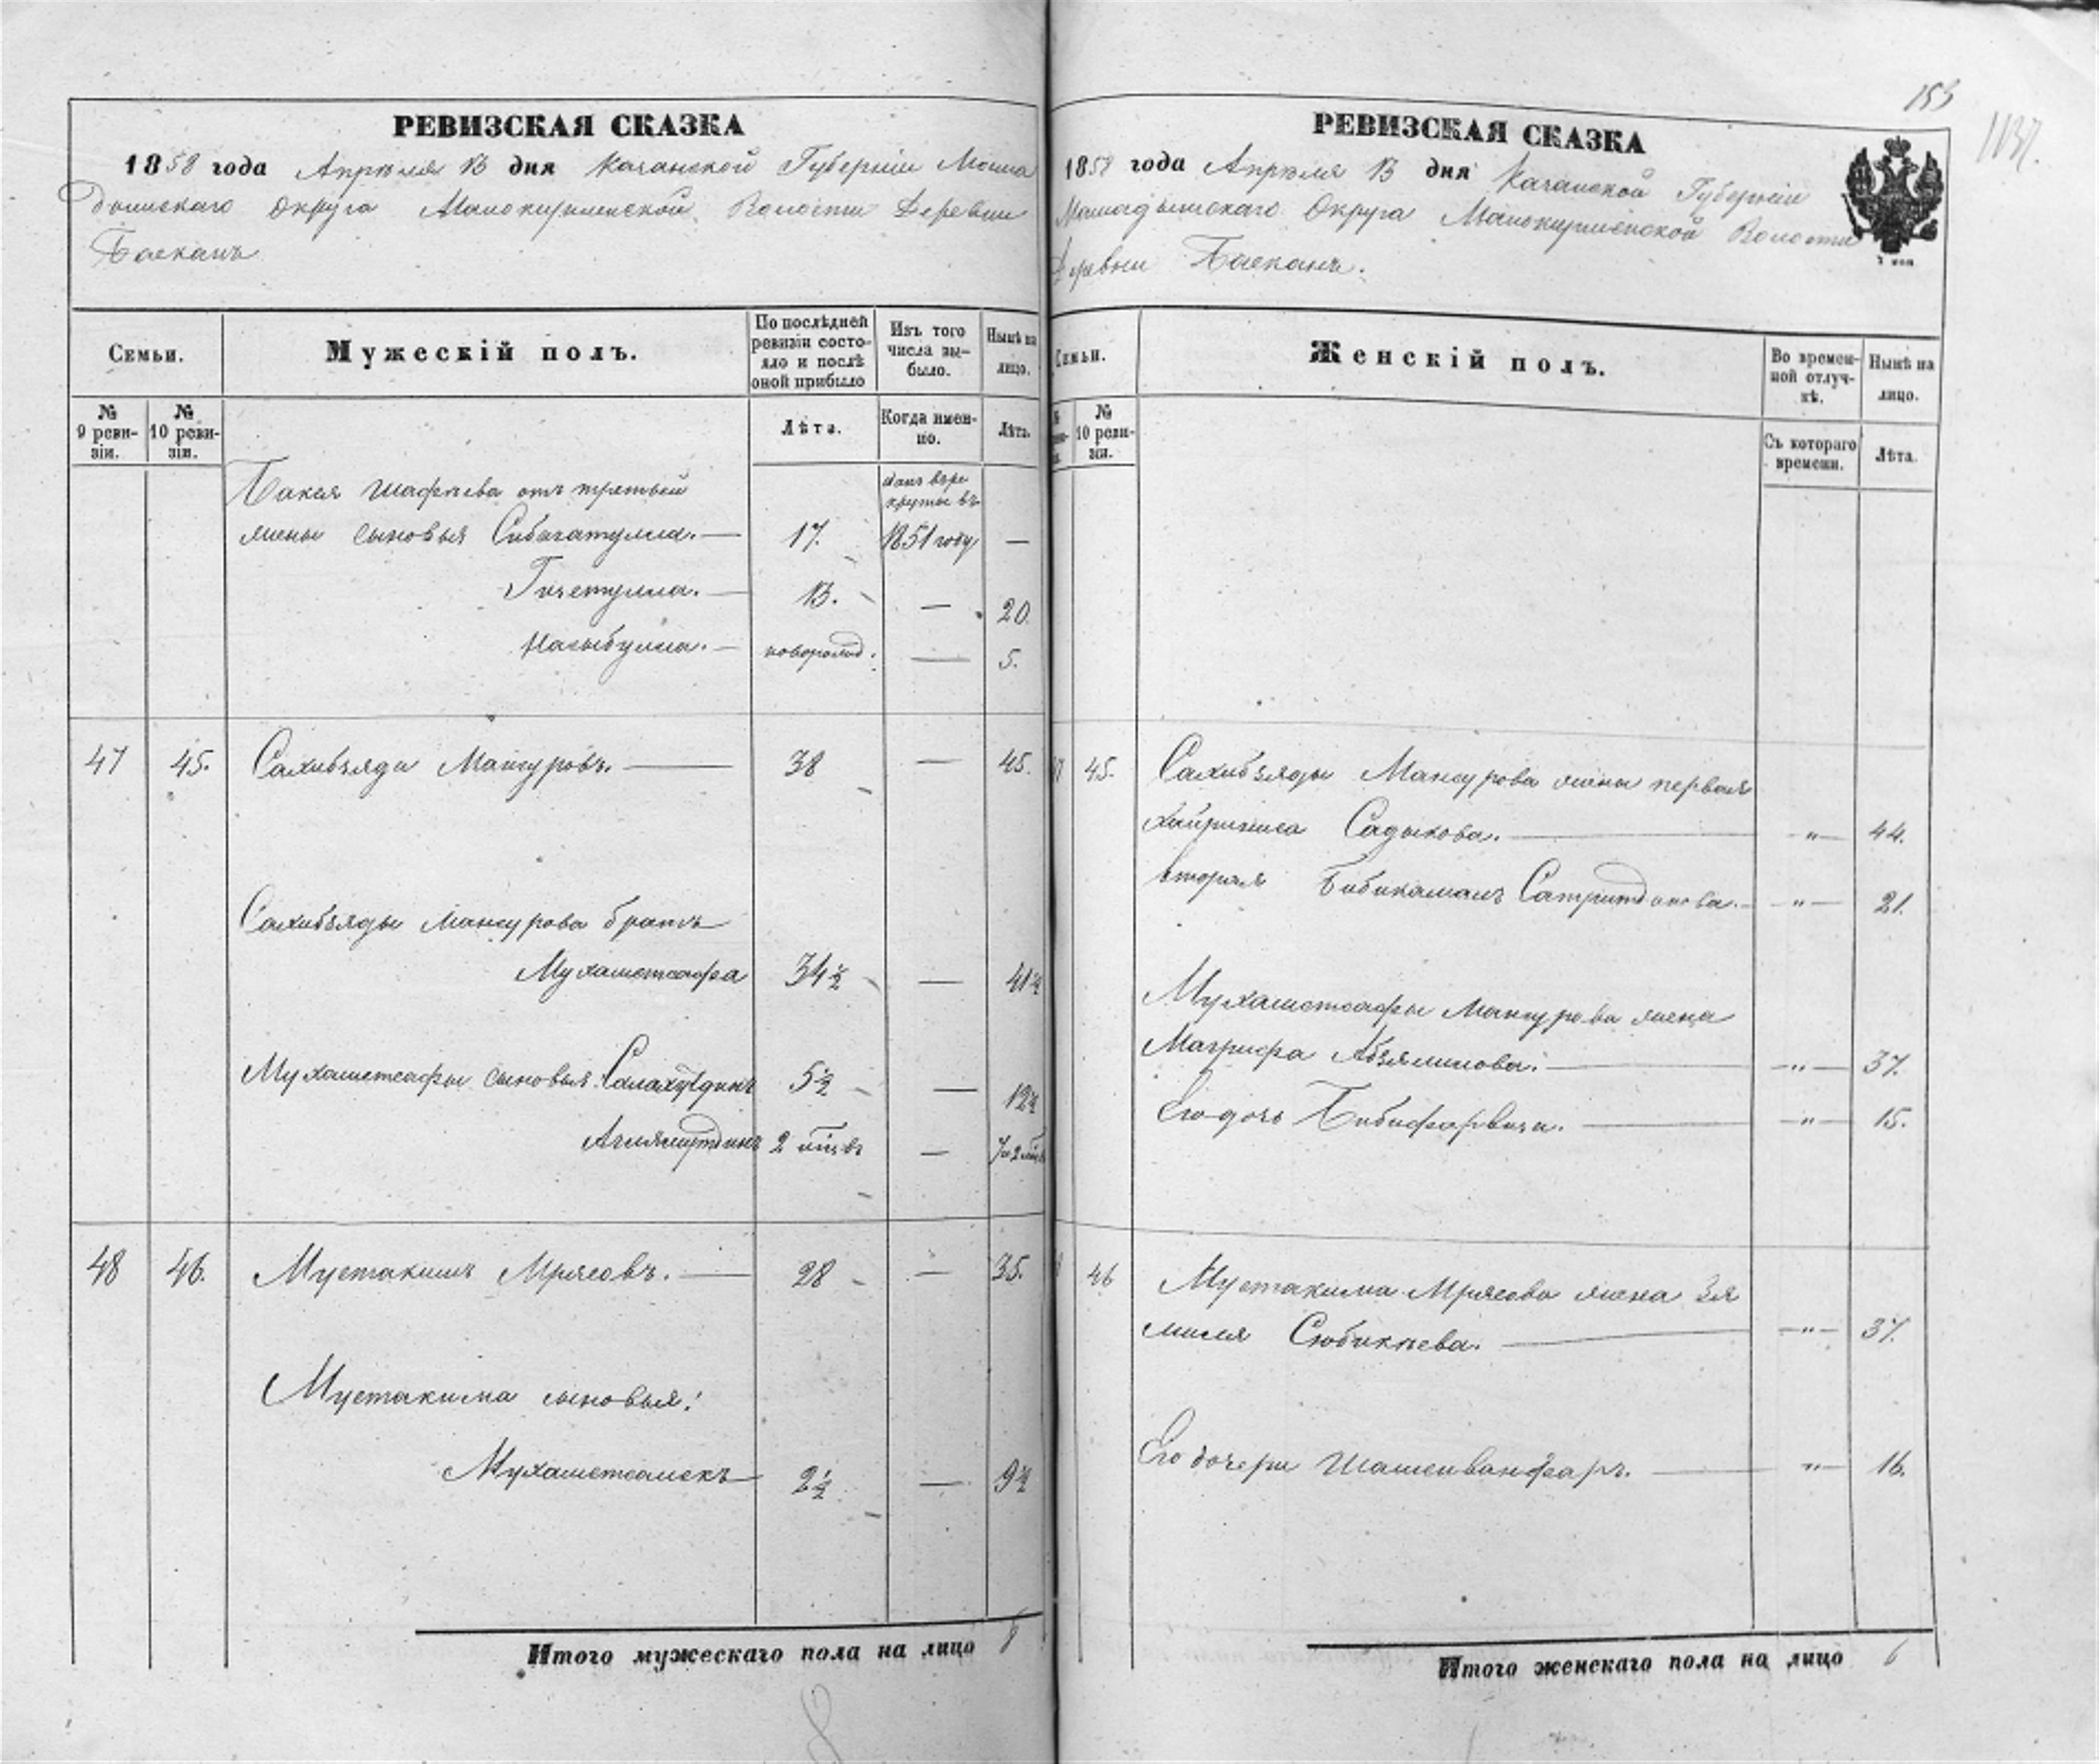 РЕВИЗСКАЯ СКАЗКА
1858 года Апрѣля 13 дня Казанской Губерніи Мама
дышскаго Округа Малокирменской Волости Деревни
Баскань
Семьи.
Мужескій полъ.
По послѣдней ревизіи состояло и послѣ оной прибыло
Изъ того числа выбыло.
Нынѣ на лицо.
№ 9 ревизіи.
№ 10 ревизіи.
Лѣта.
Когда именно.
Лѣта.
Бакея Шафѣева отъ третьей
жены сыновья Сибагатулла. — 17. данъ въ рекруты въ 1851 году —
Гизетулла. — 13. — 20.
Насыбулла. — новорожд. — 5.
47 45. Сахибзяди Мансуровъ. — 38 — 45.
Сахибзяды Мансурова братъ
Мухаметсафа 34½ — 41½
Мухаметсафы сыновья Салахутдинъ 5½ — 12½
Аглямутдинъ 2 мѣс. — 7 и 2 мѣс.
48 46. Мустакимъ Мрясовъ. — 28 — 35.
Мустакима сыновья:
Мухаметсалекъ 2½ — 9½
Итого мужескаго пола на лицо 8
153
1137.
РЕВИЗСКАЯ СКАЗКА
1858 года Апрѣля 13 дня Казанской Губерніи
Мамадышскаго Округа Малокирменской Волости
Деревни Баскань.
Семьи.
Женскій полъ.
Во временной отлучкѣ.
Нынѣ на лицо.
№ 10 ревизіи.
Съ котораго времени.
Лѣта.
45. Сахибзяды Мансурова жены первая
Хайриниса Садыкова. — „ — 44.
вторая Бибикамалъ Сатритдинова. — „ — 21.
Мухаметсафы Мансурова жена
Магрифа Абзялилова. — „ — 37.
Его дочь Бибифарвиза. — „ — 15.
46 Мустакима Мрясова жена Зя
миля Сюбикѣева. — „ — 37.
Его дочери Шамсиванфаръ. — „ — 16.
Итого женскаго пола на лицо 6